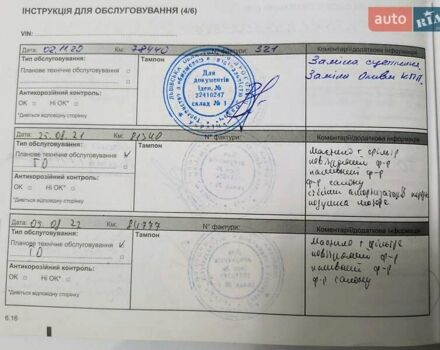 ІНСТРУКЦІЯ ДЛЯ ОБСЛУГОВУВАННЯ (4/6)
AUTO RIA
VIN:
Дата: 02.11.20 Км: 78440 N° фактури: 321
Коментарі/додаткова інформація
Тип обслуговування:
Планове технічне обслуговування
Тампон
Заміна
Заміна Оливи КПП.
Антикорозійний контроль:
OK Ні OK*
*Дивіться відповідну сторінку
Для
документів
Іден. №
22410247
склад № 1
Дата: 25.08.21 Км: 81340 N° фактури:
Коментарі/додаткова інформація
Тип обслуговування:
Планове технічне обслуговування
ТО
Тампон
Антикорозійний контроль:
OK Ні OK*
*Дивіться відповідну сторінку
масло + фільтр
повітряний ф-р
паливний ф-р
ф-р салону
Дата: 09.08.22 Км: 84777 N° фактури:
Коментарі/додаткова інформація
Тип обслуговування:
Планове технічне обслуговування
ТО
Тампон
Антикорозійний контроль:
OK Ні OK*
*Дивіться відповідну сторінку
масло + фільтр
повітряний ф-р
паливний ф-р
ф-р салону
6.16